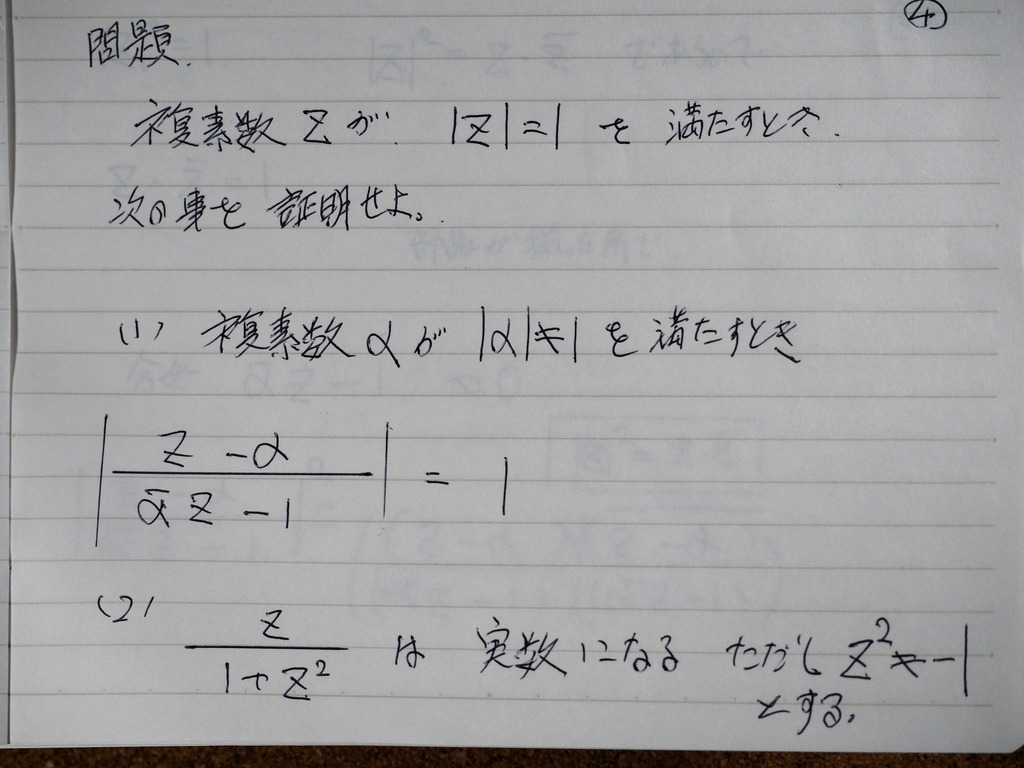 ④
問題.
複素数 Z が |Z|=1 を 満たすとき.
次の事を 証明せよ。
(1) 複素数 α が |α|≠1 を満たすとき
| (Z-α)/(ᾱZ-1) | = 1
(2) Z/(1+Z²) は 実数になる ただし Z²≠-1
とする。